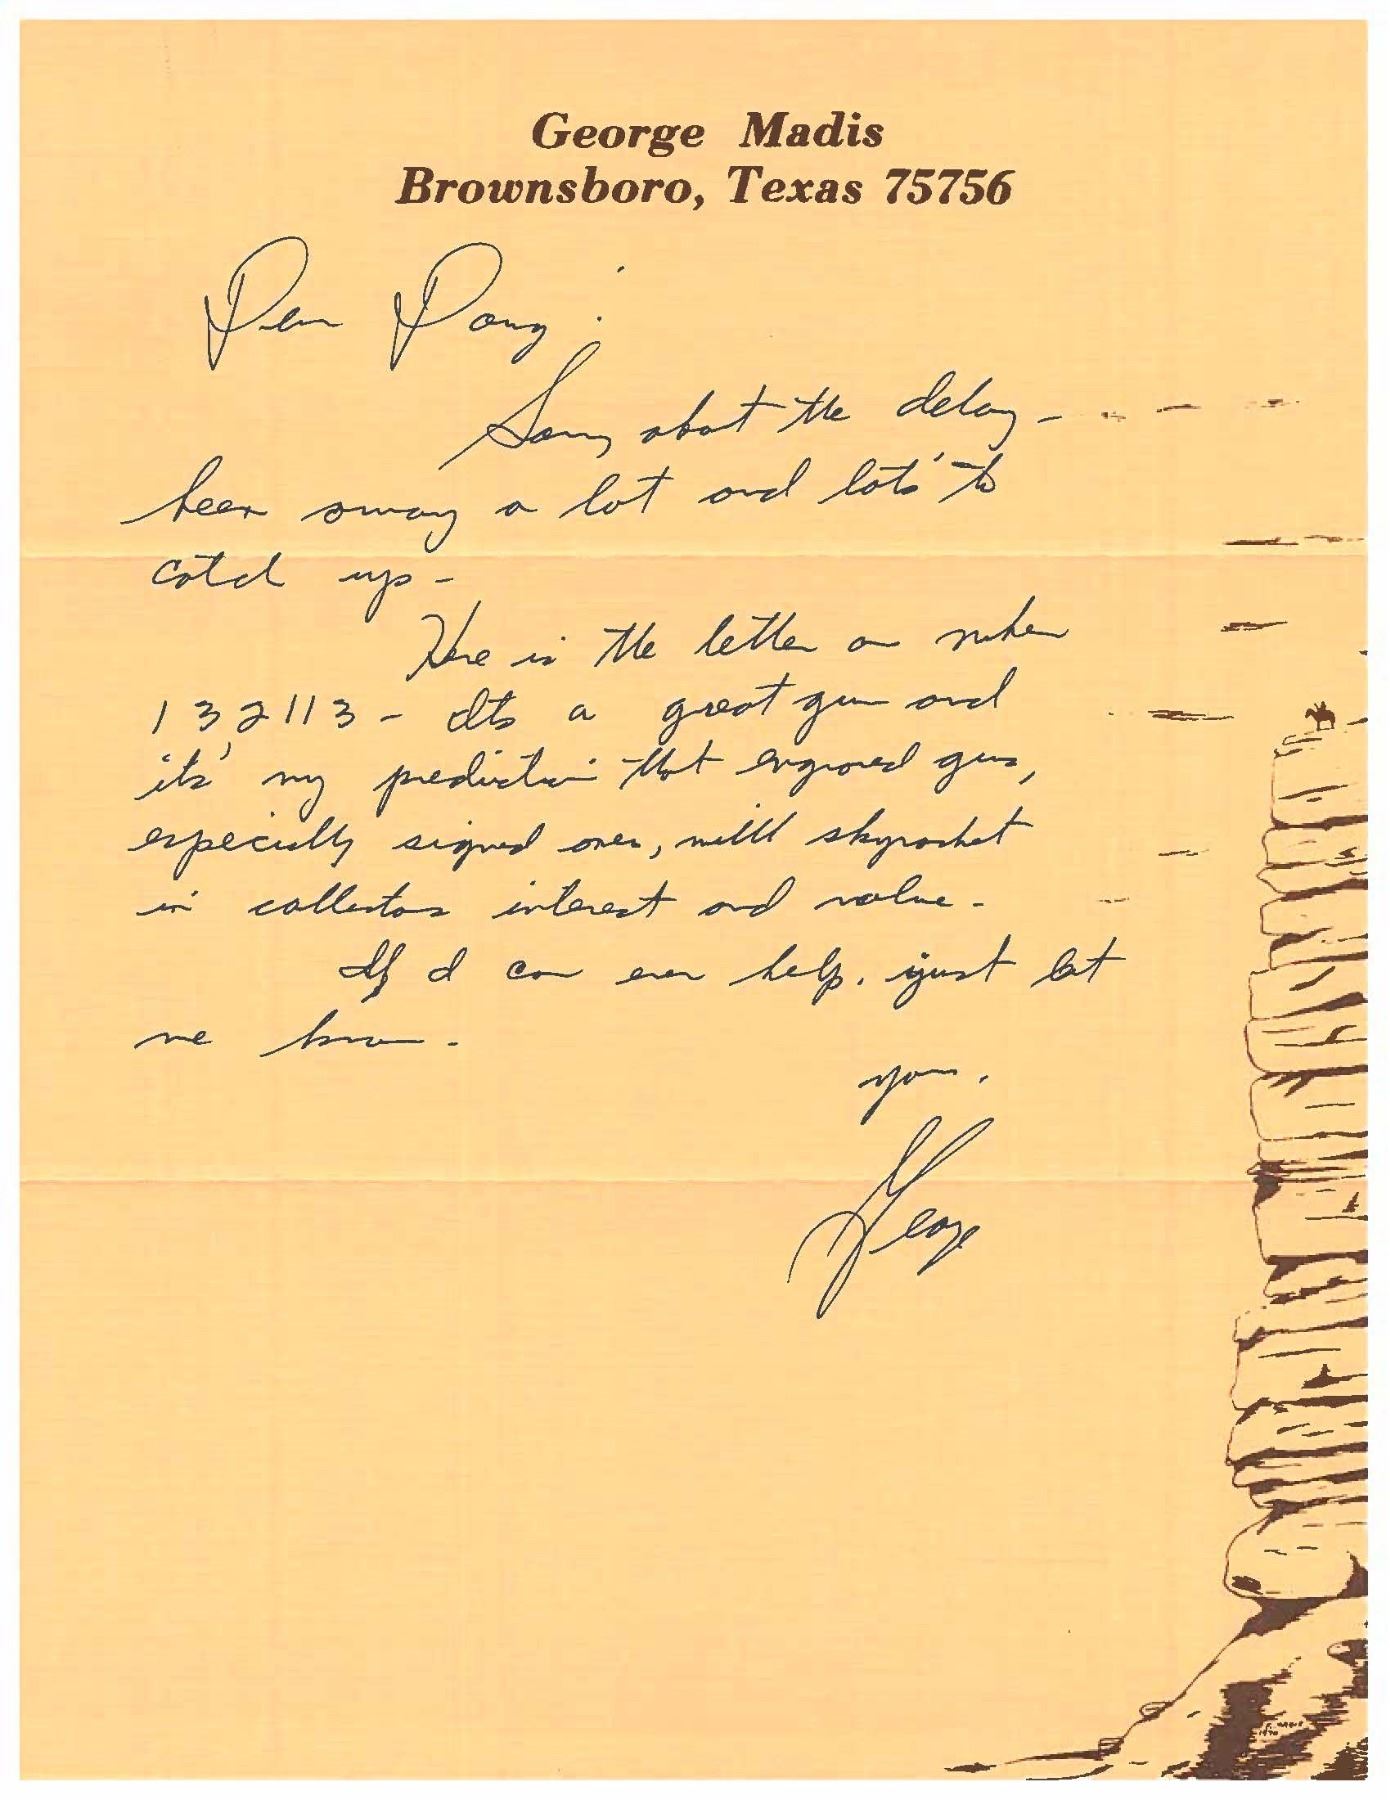 George Madis
Brownsboro, Texas 75756
Dear Doug:
Sorry about the delay -
been away a lot and lots' to
catch up -
Here is the letter on number
132113 - Its a great gun and
its' my prediction that engraved guns,
especially signed ones, willl skyrocket
in collectors interest and value -
If I can ever help, just let
me know.
Yours,
George